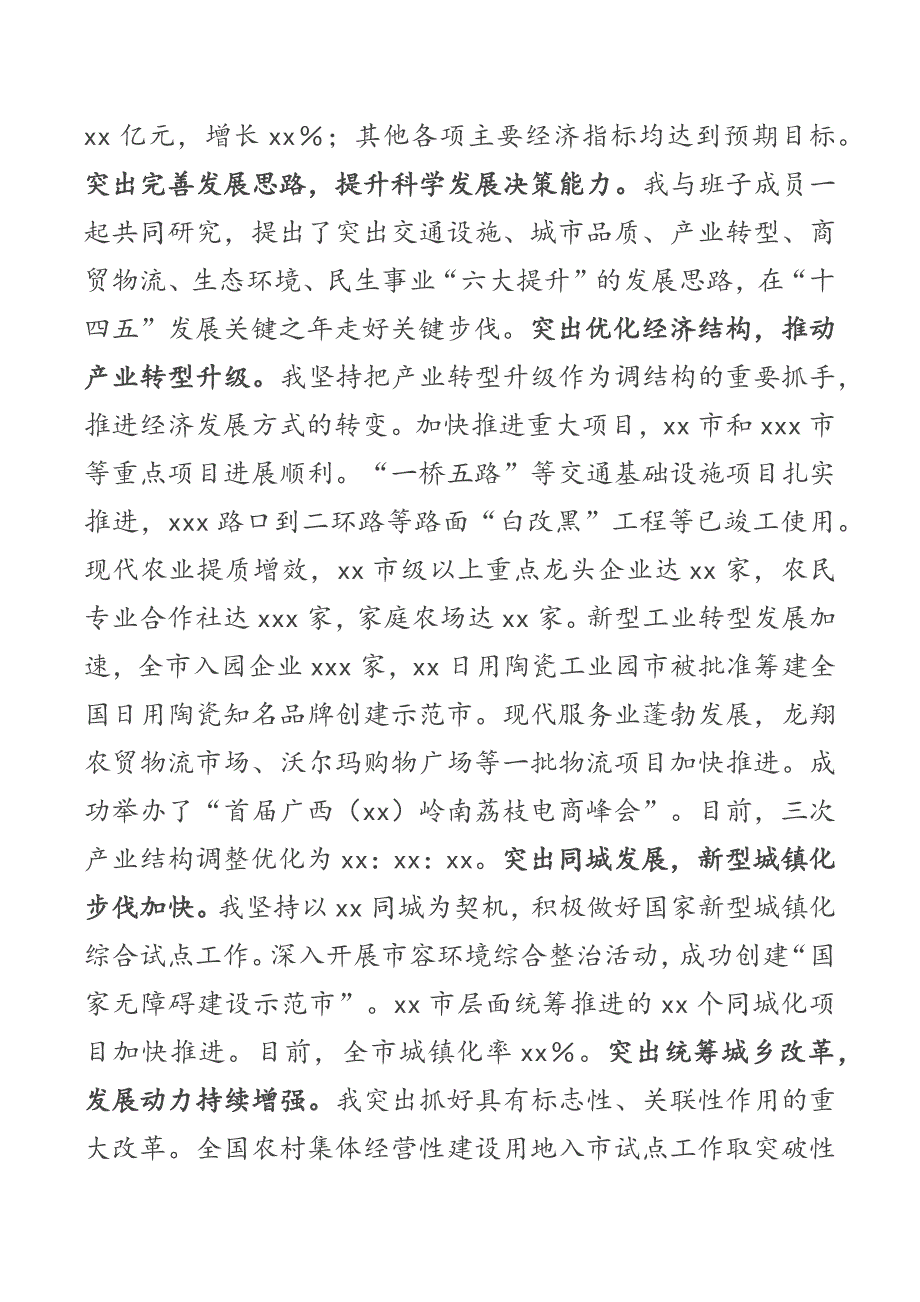 xx 亿元，增长 xx％；其他各项主要经济指标均达到预期目标。
突出完善发展思路，提升科学发展决策能力。我与班子成员一
起共同研究，提出了突出交通设施、城市品质、产业转型、商
贸物流、生态环境、民生事业“六大提升”的发展思路，在“十
四五”发展关键之年走好关键步伐。突出优化经济结构，推动
产业转型升级。我坚持把产业转型升级作为调结构的重要抓手，
推进经济发展方式的转变。加快推进重大项目，xx 市和 xxx 市
等重点项目进展顺利。“一桥五路”等交通基础设施项目扎实
推进，xxx 路口到二环路等路面“白改黑”工程等已竣工使用。
现代农业提质增效，xx 市级以上重点龙头企业达 xx 家，农民
专业合作社达 xxx 家，家庭农场达 xx 家。新型工业转型发展加
速，全市入园企业 xxx 家，xx 日用陶瓷工业园市被批准筹建全
国日用陶瓷知名品牌创建示范市。现代服务业蓬勃发展，龙翔
农贸物流市场、沃尔玛购物广场等一批物流项目加快推进。成
功举办了“首届广西（xx）岭南荔枝电商峰会”。目前，三次
产业结构调整优化为 xx：xx：xx。突出同城发展，新型城镇化
步伐加快。我坚持以 xx 同城为契机，积极做好国家新型城镇化
综合试点工作。深入开展市容环境综合整治活动，成功创建“国
家无障碍建设示范市”。xx 市层面统筹推进的 xx 个同城化项
目加快推进。目前，全市城镇化率 xx％。突出统筹城乡改革，
发展动力持续增强。我突出抓好具有标志性、关联性作用的重
大改革。全国农村集体经营性建设用地入市试点工作取突破性